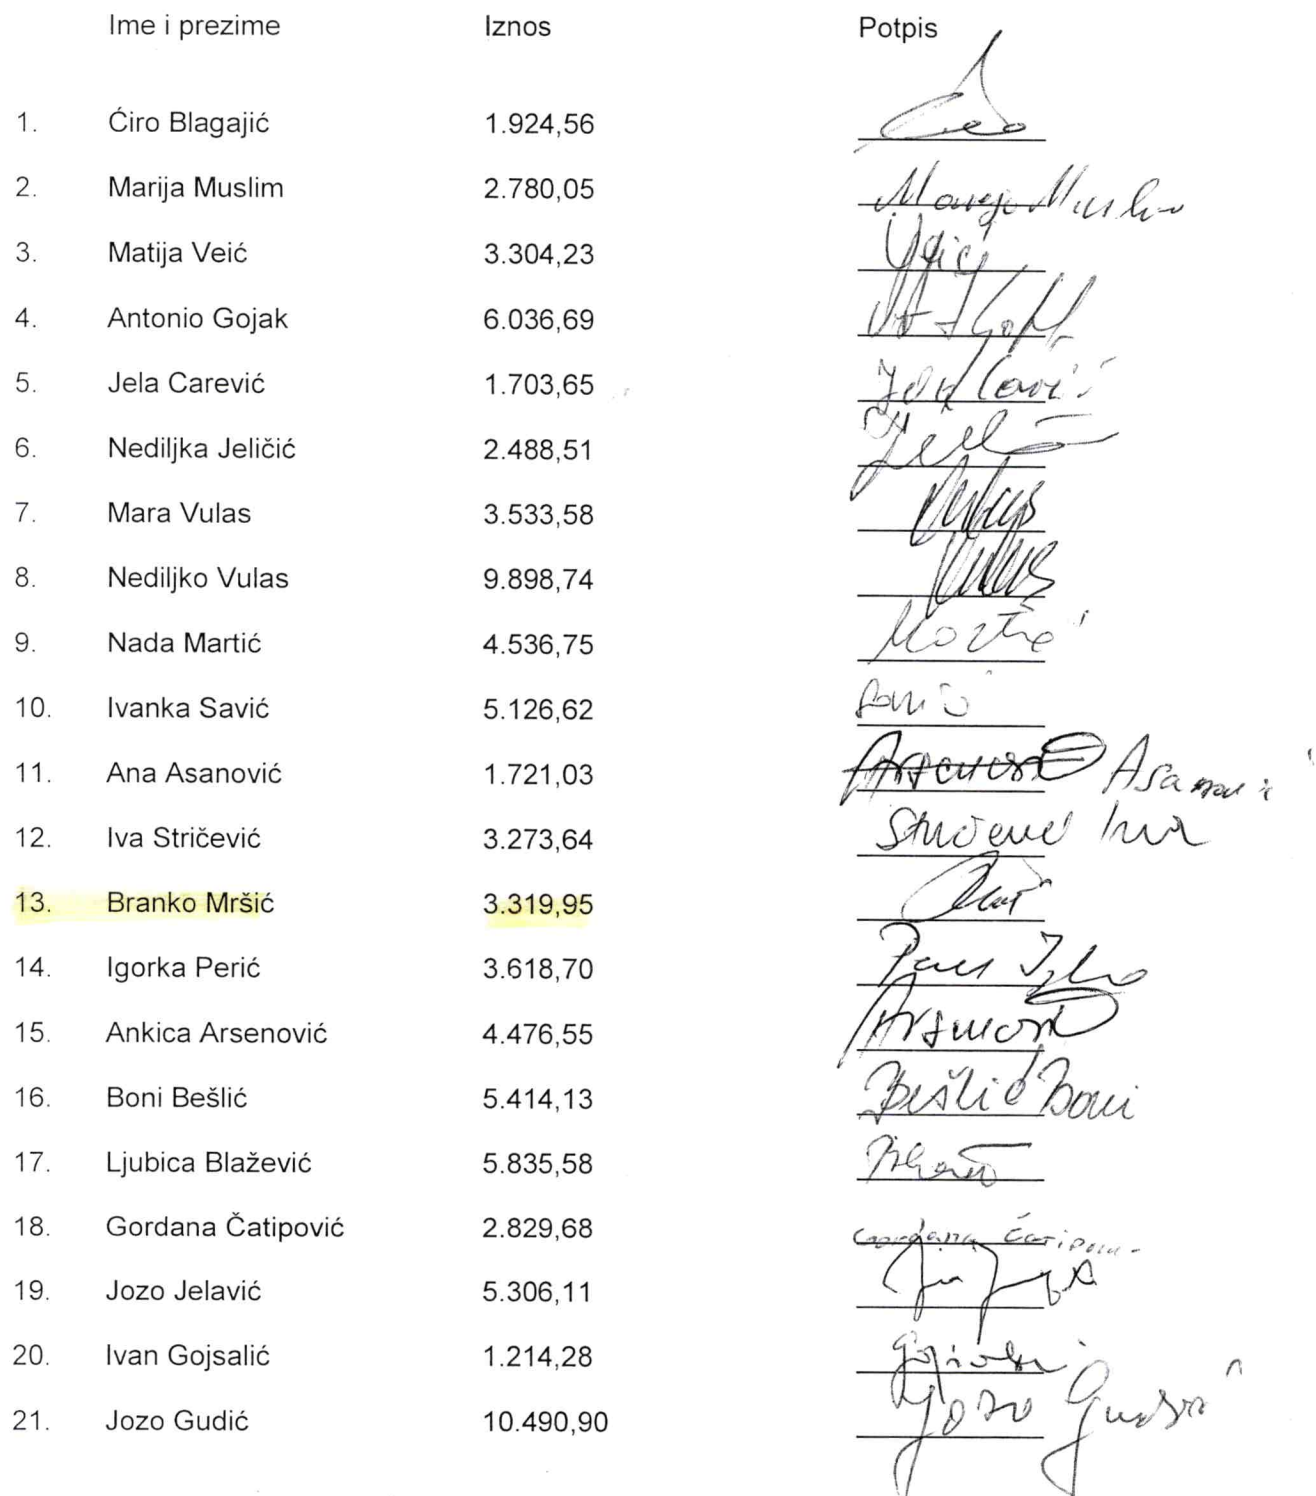 Ime i prezime Iznos Potpis
1. Ćiro Blagajić 1.924,56
2. Marija Muslim 2.780,05 Marija Muslim
3. Matija Veić 3.304,23 Veić
4. Antonio Gojak 6.036,69
5. Jela Carević 1.703,65 Jela
6. Nediljka Jeličić 2.488,51
7. Mara Vulas 3.533,58 Vulas
8. Nediljko Vulas 9.898,74 Vulas
9. Nada Martić 4.536,75 Martić
10. Ivanka Savić 5.126,62 Savić
11. Ana Asanović 1.721,03
12. Iva Stričević 3.273,64 Iva
13. Branko Mršić 3.319,95
14. Igorka Perić 3.618,70
15. Ankica Arsenović 4.476,55
16. Boni Bešlić 5.414,13 Bešlić Boni
17. Ljubica Blažević 5.835,58
18. Gordana Čatipović 2.829,68 Gordana
19. Jozo Jelavić 5.306,11
20. Ivan Gojsalić 1.214,28
21. Jozo Gudić 10.490,90 Jozo Gudić